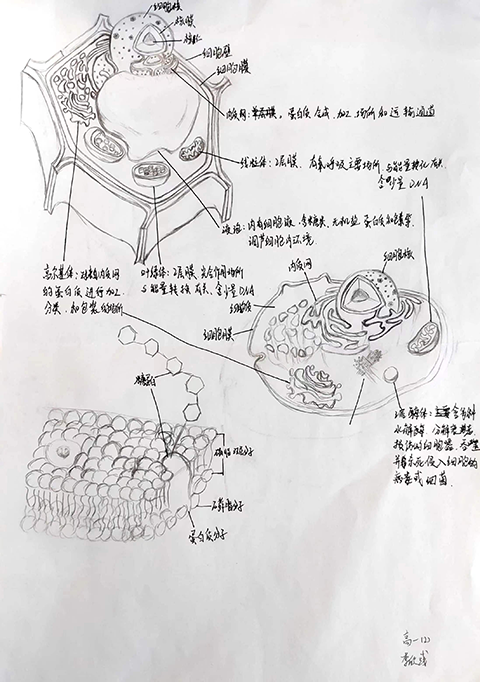 细胞核
核膜
核仁
细胞壁
细胞膜
内质网：单层膜，蛋白质合成、加工场所和运输通道
线粒体：2层膜，有氧呼吸主要场所 与能量转化有关，
含少量DNA
液泡：内有细胞液，含糖类、无机盐、蛋白质和色素等，
调节细胞内环境
高尔基体：对来自内质网
的蛋白质进行加工、
分类、和包装的场所
叶绿体：2层膜 光合作用场所
与能量转换有关，含少量DNA
内质网
细胞核
细胞膜
溶酶体：主要含多种
水解酶，分解衰老
损伤的细胞器，吞噬
并杀死侵入细胞的
病毒或细菌
糖蛋白
磷脂双分子
蛋白质分子
高一(2)